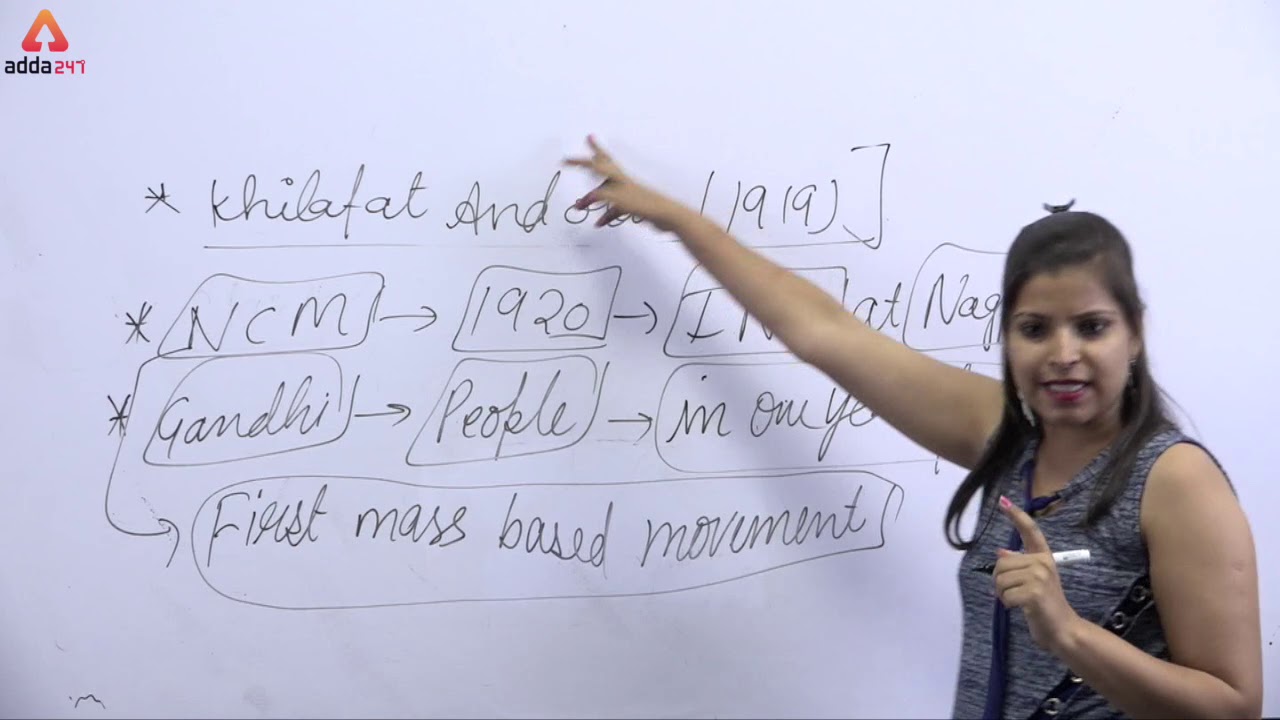 adda247
* Khilafat Andolan (1919)]
* NCM → 1920 → at
* Gandhi → People → in one
First mass based movement